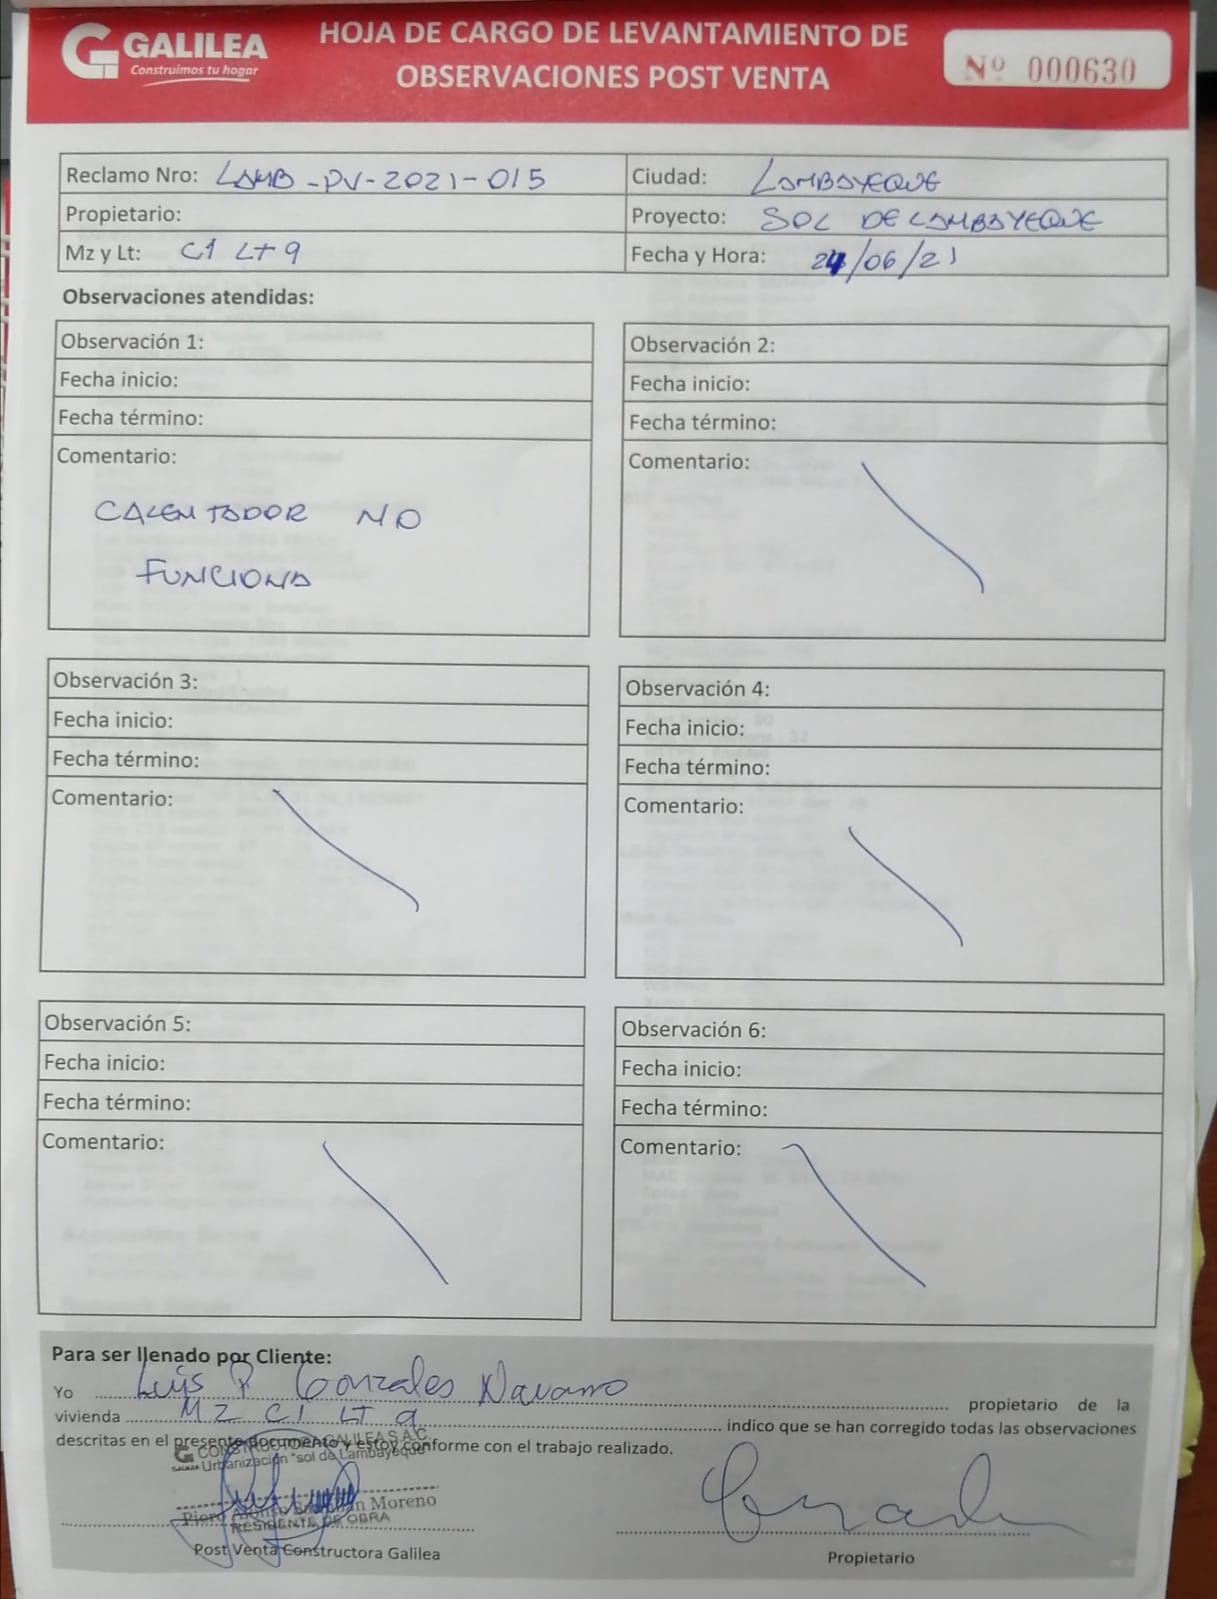 GALILEA
Construimos tu hogar
HOJA DE CARGO DE LEVANTAMIENTO DE
OBSERVACIONES POST VENTA
Nº 000630
Reclamo Nro: LAMB-PV-2021-015
Ciudad: LAMBAYEQUE
Propietario:
Proyecto: SOL DE LAMBAYEQUE
Mz y Lt: C1 LT 9
Fecha y Hora: 24/06/21
Observaciones atendidas:
Observación 1:
Fecha inicio:
Fecha término:
Comentario:
CALENTADOR NO
FUNCIONA
Observación 2:
Fecha inicio:
Fecha término:
Comentario:
Observación 3:
Fecha inicio:
Fecha término:
Comentario:
Observación 4:
Fecha inicio:
Fecha término:
Comentario:
Observación 5:
Fecha inicio:
Fecha término:
Comentario:
Observación 6:
Fecha inicio:
Fecha término:
Comentario:
Para ser llenado por Cliente:
Yo Luis P Gonzales Navarro propietario de la
vivienda MZ C1 LT 9 indico que se han corregido todas las observaciones
descritas en el presente documento y estoy conforme con el trabajo realizado.
CONSTRUCTORA GALILEA S.A.C.
Urbanización "sol de Lambayeque"
Piero Alonso Moreno
RESIDENTE DE OBRA
Post Venta Constructora Galilea
Propietario